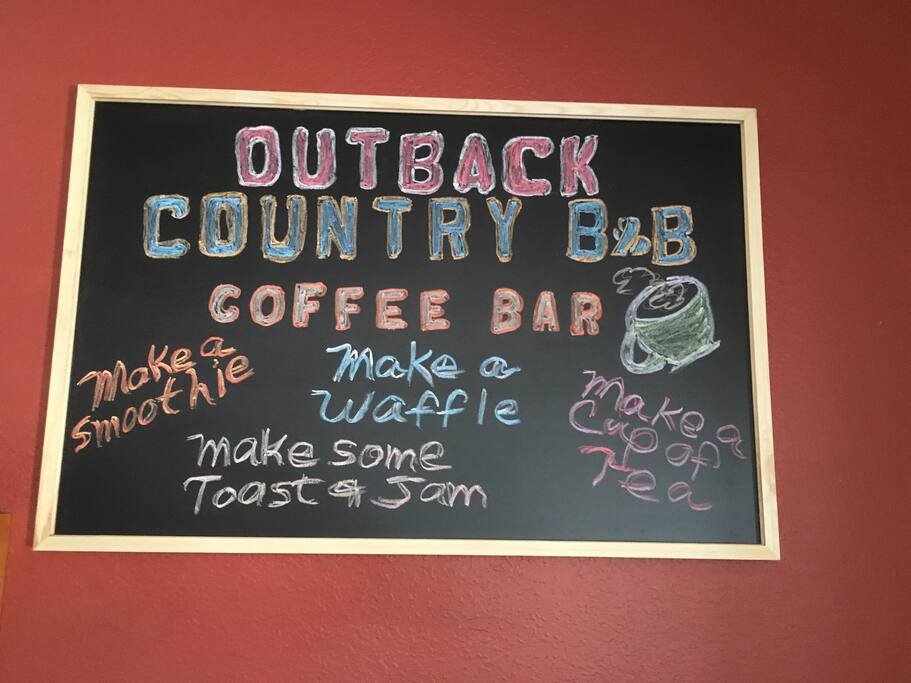 OUTBACK
COUNTRY B&B
COFFEE BAR
Make a
smoothie
Make a
Waffle
Make a
Cup of
Tea
Make some
Toast & Jam